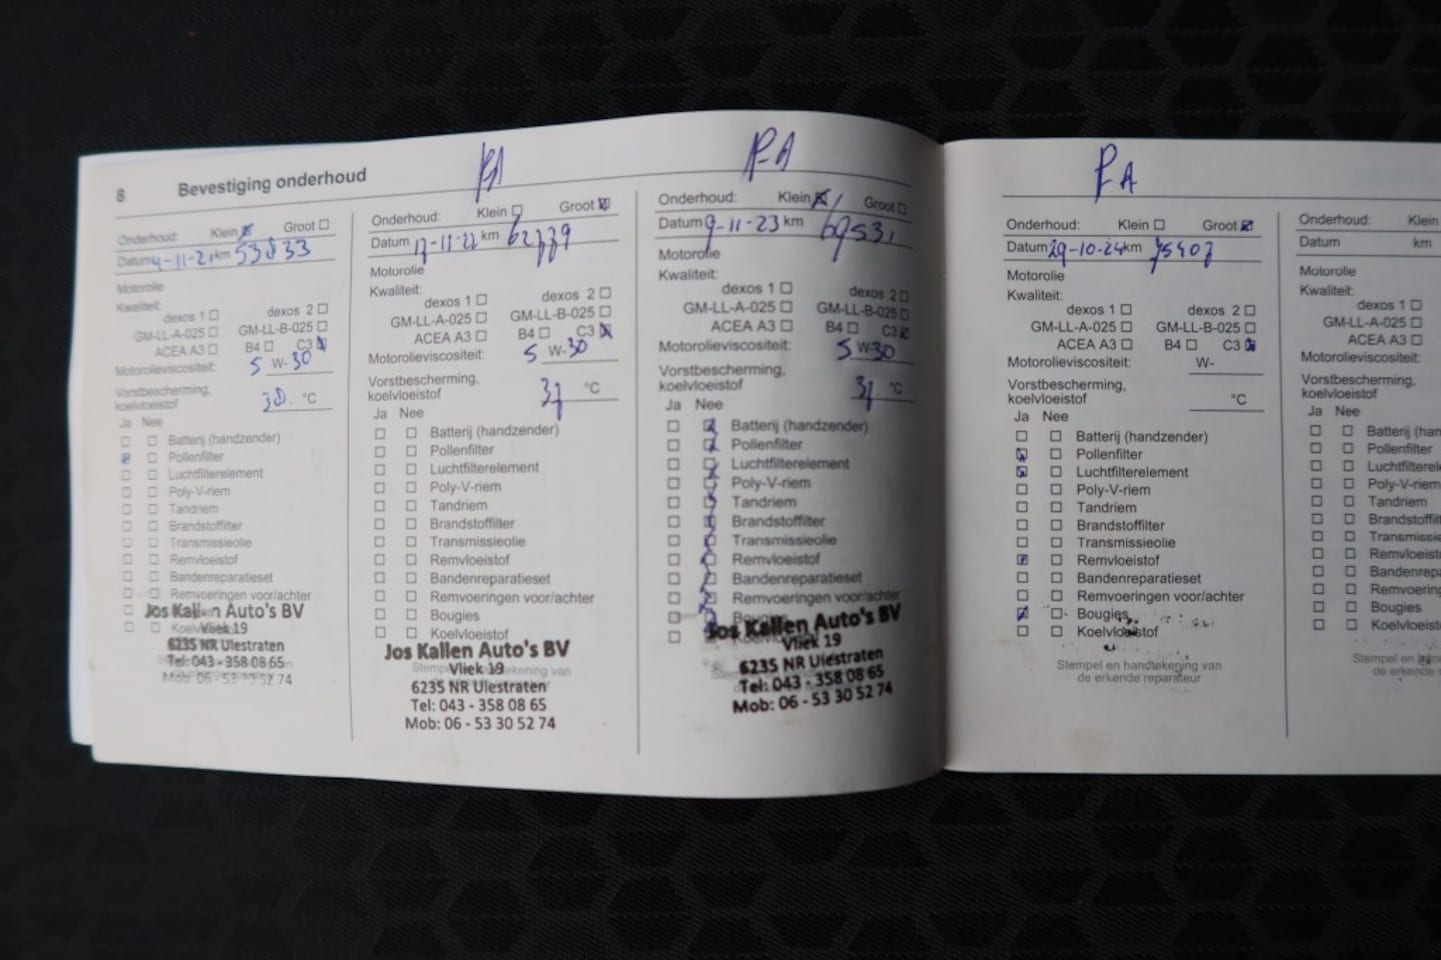 8 Bevestiging onderhoud
Onderhoud: Klein Groot
Datum 4-11-21 km 53833
Motorolie
Kwaliteit:
dexos 1
GM-LL-A-025 GM-LL-B-025
ACEA A3 B4 C3
Motorolieviscositeit: 5 W-30
Vorstbescherming,
koelvloeistof °C
Ja Nee
Batterij (handzender)
Pollenfilter
Luchtfilterelement
Poly-V-riem
Tandriem
Brandstoffilter
Transmissieolie
Remvloeistof
Bandenreparatieset
Remvoeringen voor/achter
Jos Kallen Auto's BV
Vliek 19
6235 NR Ulestraten
Tel: 043 - 358 08 65
Mob: 06 - 53 30 52 74
Onderhoud: Klein Groot
Datum 17-11-22 km
Motorolie
Kwaliteit:
dexos 1 dexos 2
GM-LL-A-025 GM-LL-B-025
ACEA A3 B4 C3
Motorolieviscositeit: 5 W-30
Vorstbescherming,
koelvloeistof 37 °C
Ja Nee
Batterij (handzender)
Pollenfilter
Luchtfilterelement
Poly-V-riem
Tandriem
Brandstoffilter
Transmissieolie
Remvloeistof
Bandenreparatieset
Remvoeringen voor/achter
Bougies
Koelvloeistof
Jos Kallen Auto's BV
Vliek 19
6235 NR Ulestraten
Tel: 043 - 358 08 65
Mob: 06 - 53 30 52 74
P-A
Onderhoud: Klein Groot
Datum 9-11-23 km 69531
Motorolie
Kwaliteit:
dexos 1 dexos 2
GM-LL-A-025 GM-LL-B-025
ACEA A3 B4 C3
Motorolieviscositeit: 5 W-30
Vorstbescherming,
koelvloeistof 37 °C
Ja Nee
Batterij (handzender)
Pollenfilter
Luchtfilterelement
Poly-V-riem
Tandriem
Brandstoffilter
Transmissieolie
Remvloeistof
Bandenreparatieset
Remvoeringen voor/achter
Bougies
Jos Kallen Auto's BV
Vliek 19
6235 NR Ulestraten
Tel: 043 - 358 08 65
Mob: 06 - 53 30 52 74
P A
Onderhoud: Klein Groot
Datum 29-10-24 km 75407
Motorolie
Kwaliteit:
dexos 1 dexos 2
GM-LL-A-025 GM-LL-B-025
ACEA A3 B4 C3
Motorolieviscositeit: W-
Vorstbescherming,
koelvloeistof °C
Ja Nee
Batterij (handzender)
Pollenfilter
Luchtfilterelement
Poly-V-riem
Tandriem
Brandstoffilter
Transmissieolie
Remvloeistof
Bandenreparatieset
Remvoeringen voor/achter
Bougies
Koelvloeistof
Stempel en handtekening van
de erkende reparateur
Onderhoud: Klein
Datum km
Motorolie
Kwaliteit:
dexos 1
GM-LL-A-025
ACEA A3
Motorolieviscositeit:
Vorstbescherming,
koelvloeistof
Ja Nee
Batterij (han
Pollenfilter
Luchtfilterele
Poly-V-riem
Tandriem
Brandstoffilt
Transmissie
Remvloeist
Bandenrepa
Remvoering
Bougies
Koelvloeist
Stempel en
de erkende